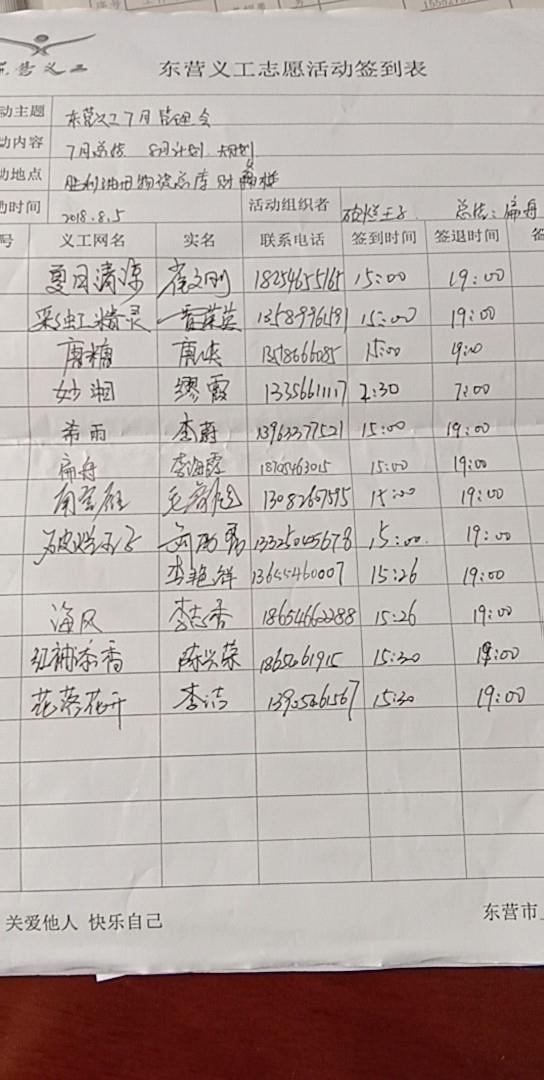 东营义工
东营义工志愿活动签到表
动主题 东营义工7月管理会
动内容 7月总结 8月计划
动地点 胜利油田物资总库
动时间 2018.8.5 活动组织者 破烂王子 总结:扁舟
号 义工网名 实名 联系电话 签到时间 签退时间 签
夏日清凉 崔文刚 18254655165 15:00 19:00
彩虹精灵 15:00 19:00
唐糖 15:00 19:00
妙湘 缪霞 13356611117 2:30 7:00
希雨 李蔚 13963377521 15:00 19:00
扁舟 李海霞 18705463015 15:00 19:00
南雪雁 13082607595 15:00 19:00
破烂王子 13325045678 15:00 19:00
李艳祥 13655460007 15:26 19:00
海风 李志香 18654662288 15:26 19:00
红袖添香 陈兴荣 15:30 19:00
花落花开 李洁 13905461567 15:30 19:00
关爱他人 快乐自己 东营市